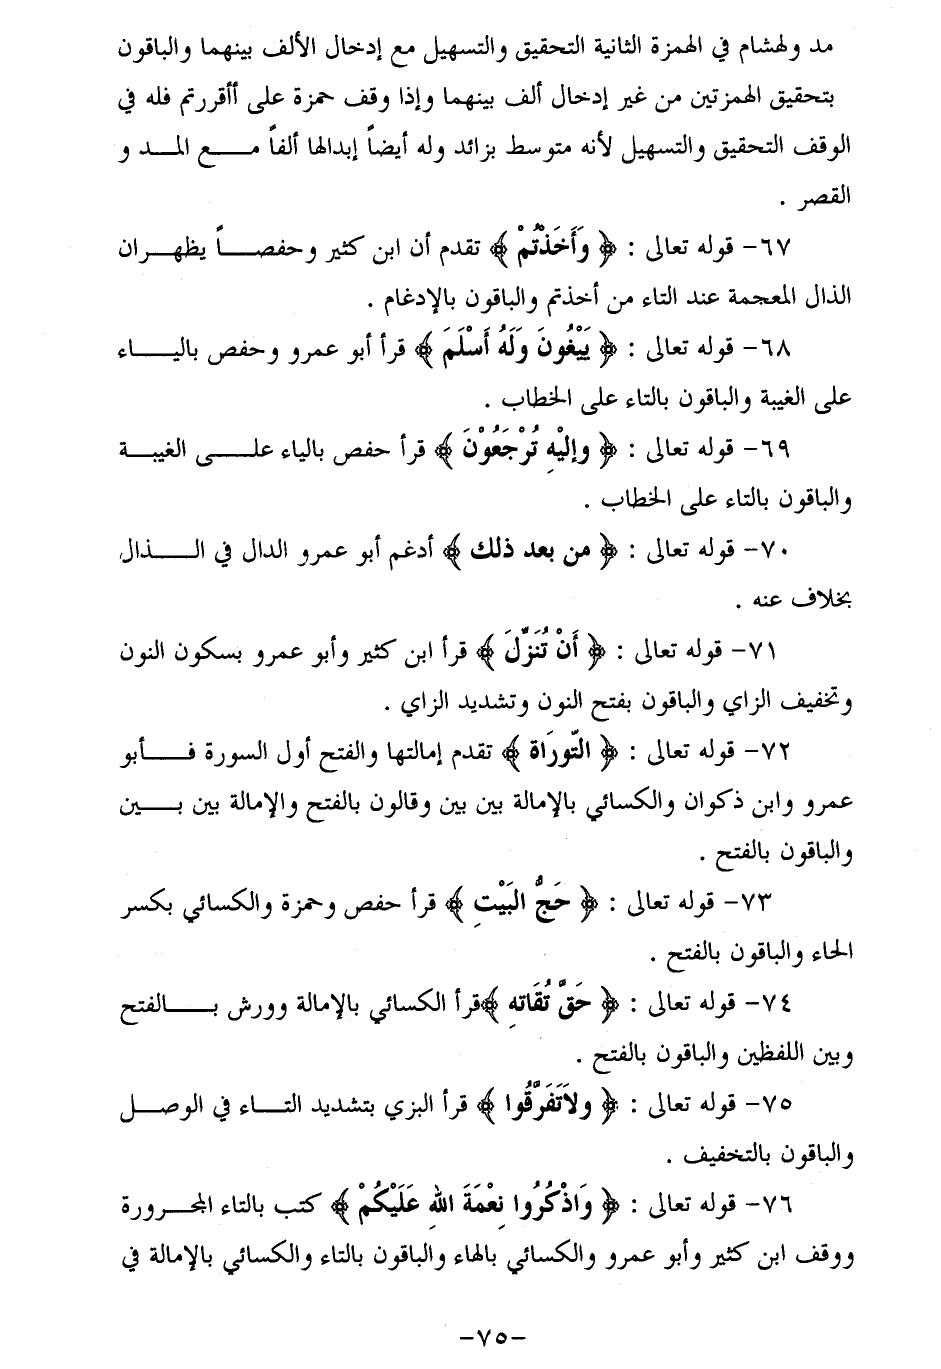 مد ولهشام في الهمزة الثانية التحقيق والتسهيل مع إدخال الألف بينهما والباقون
بتحقيق الهمزتين من غير إدخال ألف بينهما وإذا وقف حمزة على أأقررتم فله في
الوقف التحقيق والتسهيل لأنه متوسط بزائد وله أيضاً إبدالها ألفاً مع المد و
القصر .
٦٧- قوله تعالى : ﴿ وَأَخَذْتُمْ ﴾ تقدم أن ابن كثير وحفصاً يظهران
الذال المعجمة عند التاء من أخذتم والباقون بالإدغام .
٦٨- قوله تعالى : ﴿ يَبْغُونَ وَلَهُ أَسْلَمَ ﴾ قرأ أبو عمرو وحفص بالياء
على الغيبة والباقون بالتاء على الخطاب .
٦٩- قوله تعالى : ﴿ وإليْهِ تُرْجَعُوْنَ ﴾ قرأ حفص بالياء على الغيبة
والباقون بالتاء على الخطاب .
٧٠- قوله تعالى : ﴿ من بعد ذلك ﴾ أدغم أبو عمرو الدال في الذال
بخلاف عنه .
٧١- قوله تعالى : ﴿ أَنْ تُنَزَّلَ ﴾ قرأ ابن كثير وأبو عمرو بسكون النون
وتخفيف الزاي والباقون بفتح النون وتشديد الزاي .
٧٢- قوله تعالى : ﴿ التّورَاة ﴾ تقدم إمالتها والفتح أول السورة فأبو
عمرو وابن ذكوان والكسائي بالإمالة بين بين وقالون بالفتح والإمالة بين بين
والباقون بالفتح .
٧٣- قوله تعالى : ﴿ حَجُّ البَيْتِ ﴾ قرأ حفص وحمزة والكسائي بكسر
الحاء والباقون بالفتح .
٧٤- قوله تعالى : ﴿ حَقَّ تُقَاتهِ ﴾قرأ الكسائي بالإمالة وورش بالفتح
وبين اللفظين والباقون بالفتح .
٧٥- قوله تعالى : ﴿ ولاَتَفَرَّقُوا ﴾ قرأ البزي بتشديد التاء في الوصل
والباقون بالتخفيف .
٧٦- قوله تعالى : ﴿ وَاذْكُرُوا نِعْمَةَ اللهِ عَلَيْكُمْ ﴾ كتب بالتاء المجرورة
ووقف ابن كثير وأبو عمرو والكسائي بالهاء والباقون بالتاء والكسائي بالإمالة في
-٧٥-